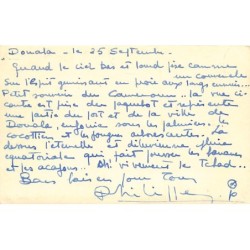 Douala - le 25 Septembre
Quand le ciel bas et lourd pèse comme
un couvercle
Sur l'esprit gémissant en proie aux longs ennuis...
Petit souvenir du Cameroun... la vue ci
contre est prise du paquebot et représente
une partie du port et de la ville de
Douala, enfouie sous les palmiers, les
cocotiers et les fougères arborescentes. Là
dessus l'éternelle et diluvienne pluie
équatoriale qui fait pousser les bananes
et les acajous... Ah! vivement le Tchad...
Bons baisers pour tous
Philippe